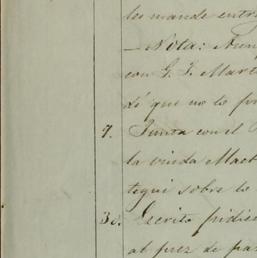 les mande entre
—Nota: Aun
con G. J. Mart
dé que no lo
7. Junta con el
la viuda Mact
tegui sobre lo
30. Escrito pidien
al juez de pa